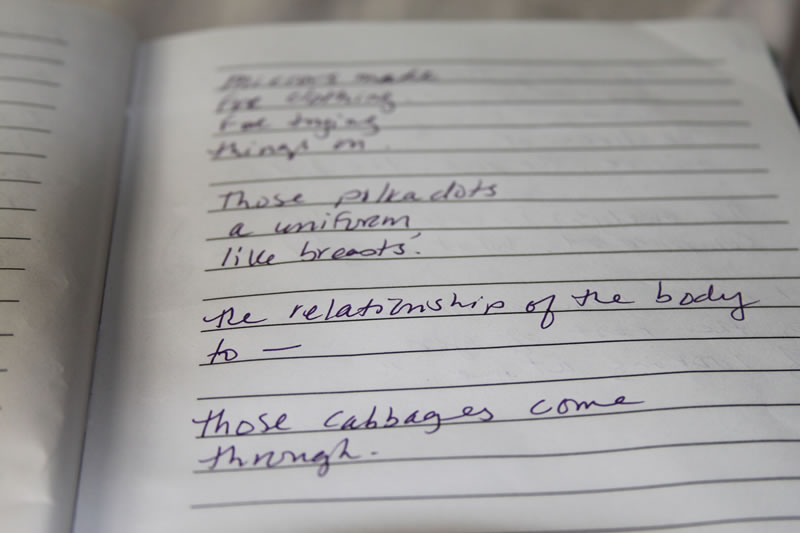 mirrors made
for clothing
for trying
things on.
Those polkadots
a uniform
like breasts.
the relationship of the body
to —
those cabbages come
through.